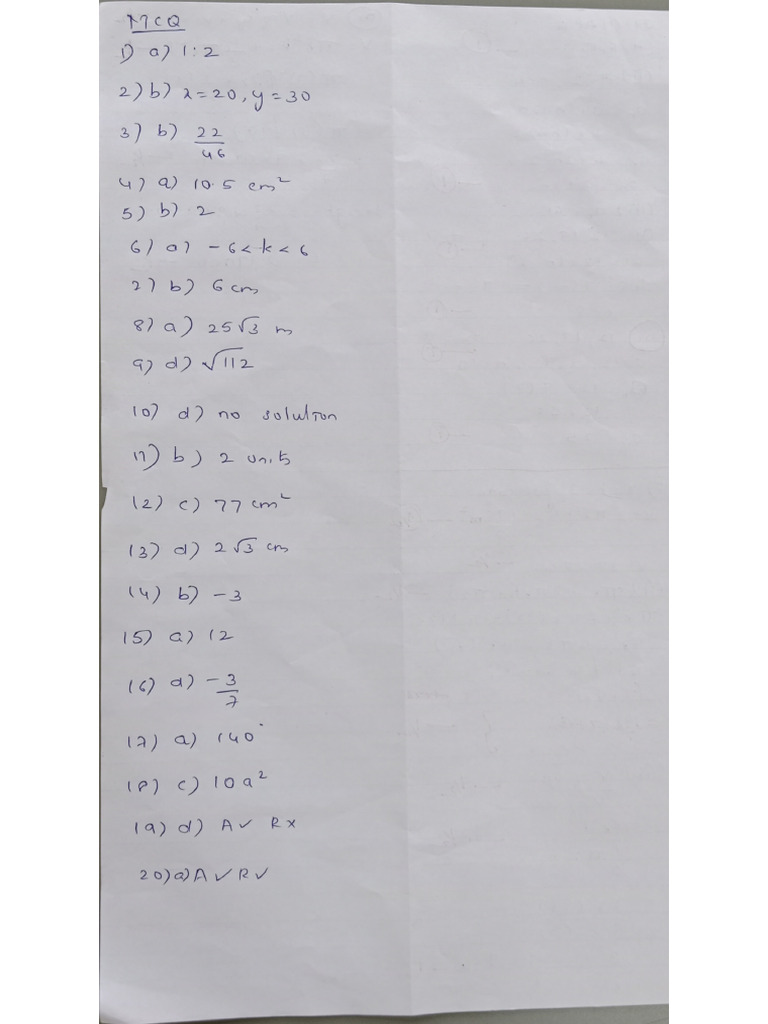 MCQ
1) a) 1:2
2) b) x=20, y=30
3) b) 22/46
4) a) 10.5 cm²
5) b) 2
6) a) -6<k<6
7) b) 6cm
8) a) 25√3 m
9) d) √112
10) d) no solution
11) b) 2 units
12) c) 77 cm²
13) d) 2√3 cm
14) b) -3
15) a) 12
16) d) -3/7
17) a) 140°
18) c) 10a²
19) d) A✓ R×
20) a) A✓ R✓